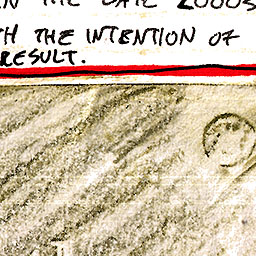 THE LATE 2000s
THE INTENTION OF
RESULT.